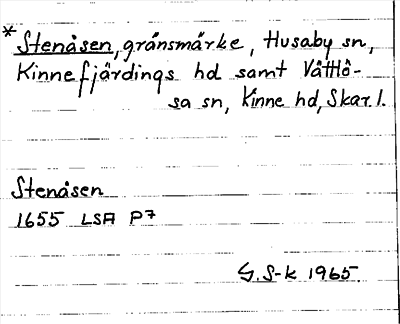 *Stenåsen, gränsmärke, Husaby sn,
Kinnefjärdings hd samt Vättlö-
sa sn, Kinne hd, Skar. l.
Stenåsen
1655 LSA P7
G. S-k 1965.